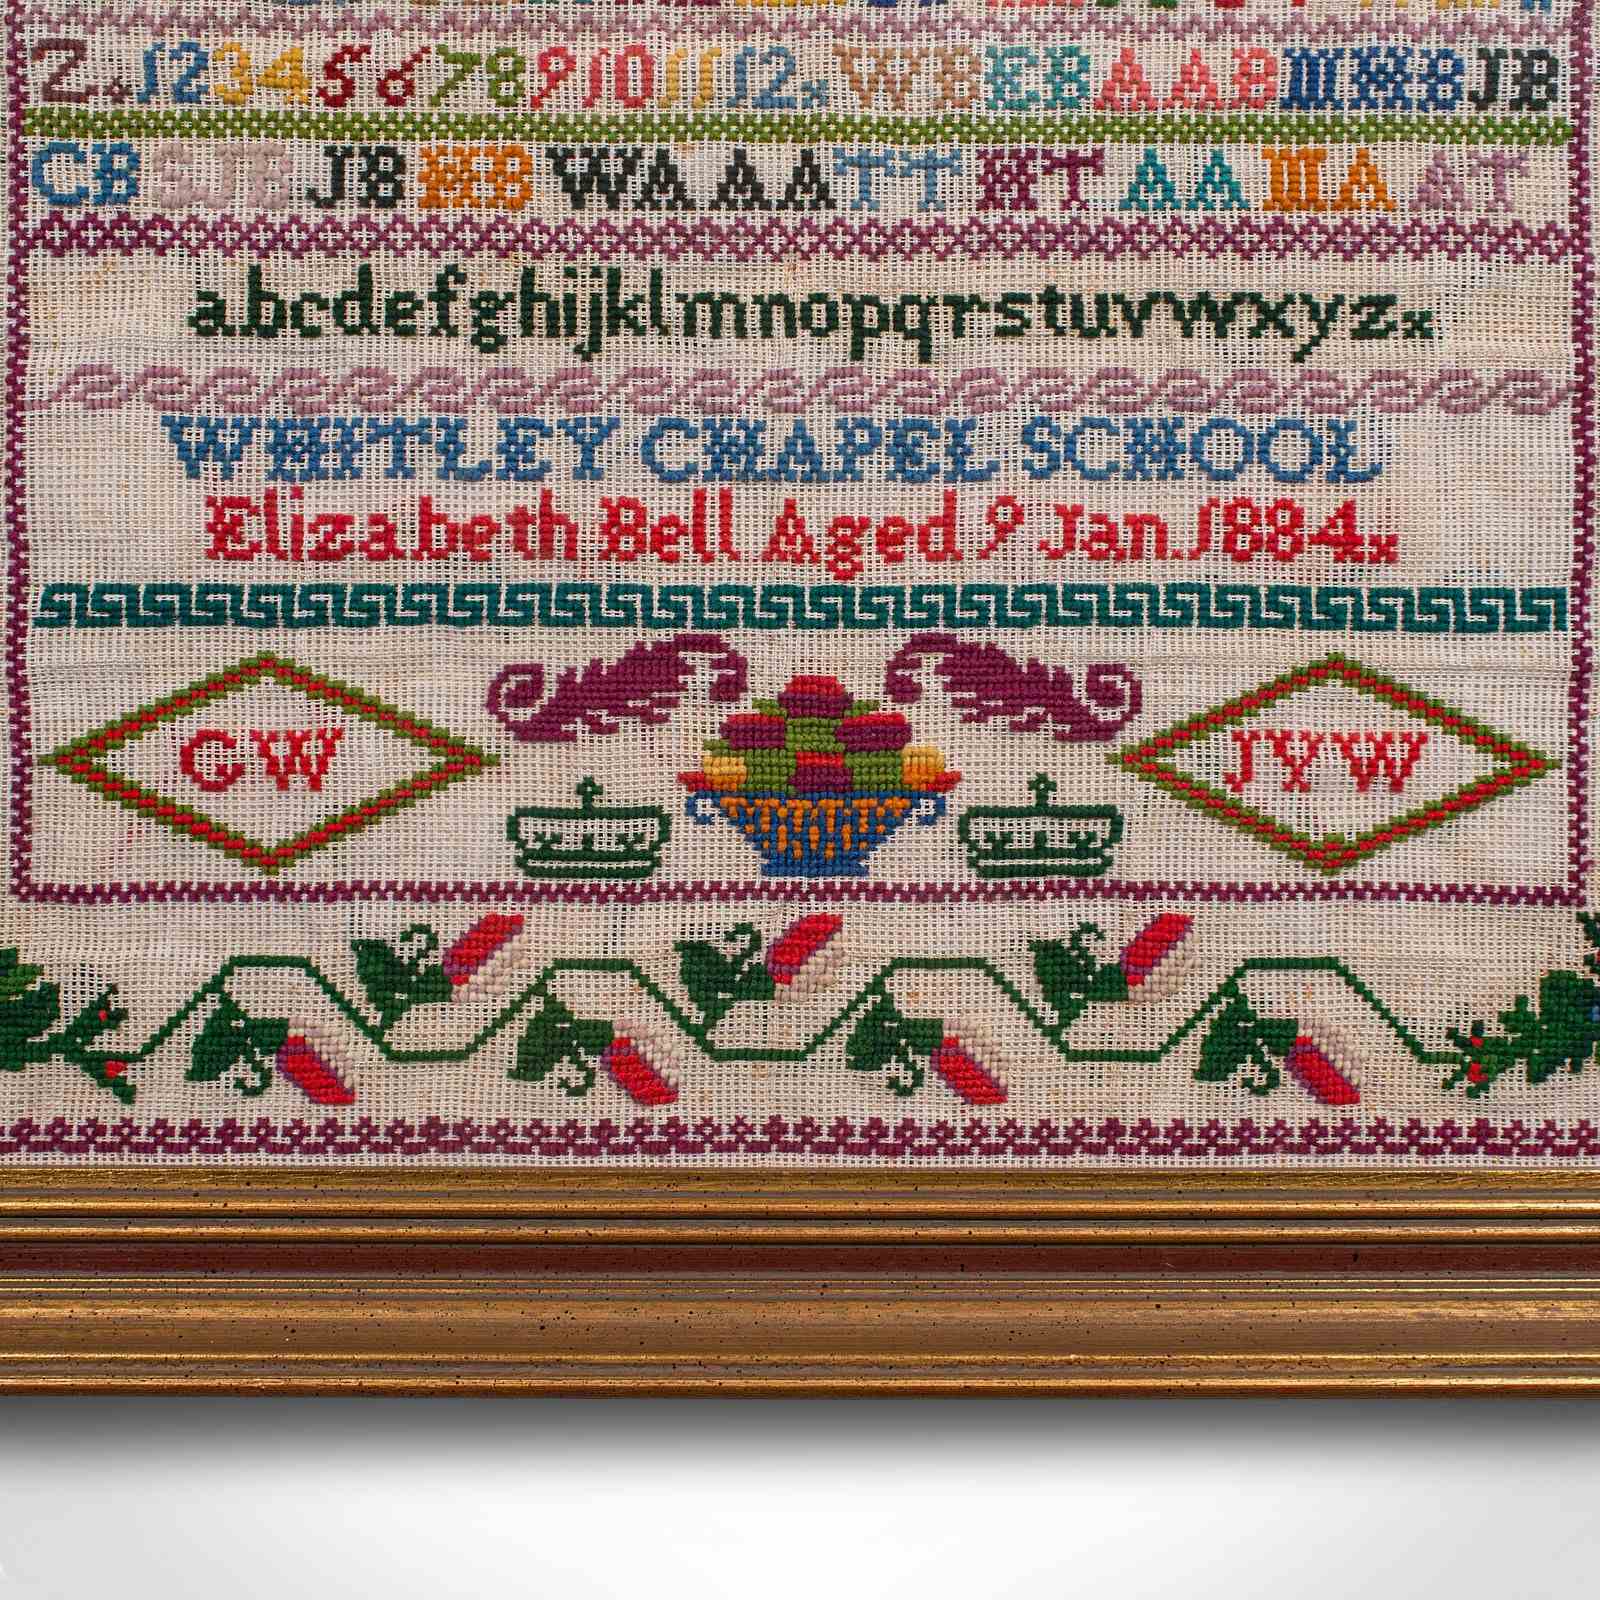 Z x 1 2 3 4 5 6 7 8 9 10 11 12 x WB EB AA AB HWB JB
CB SJB JB MB WA AA TT HT AA HA AT
abcdefghijklmnopqrstuvwxyz x
WHITLEY CHAPEL SCHOOL
Elizabeth Bell Aged 9 Jan. 1884 x
GW JYW